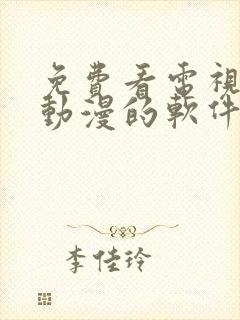 免費看電視
動漫的軟件
李佳玲